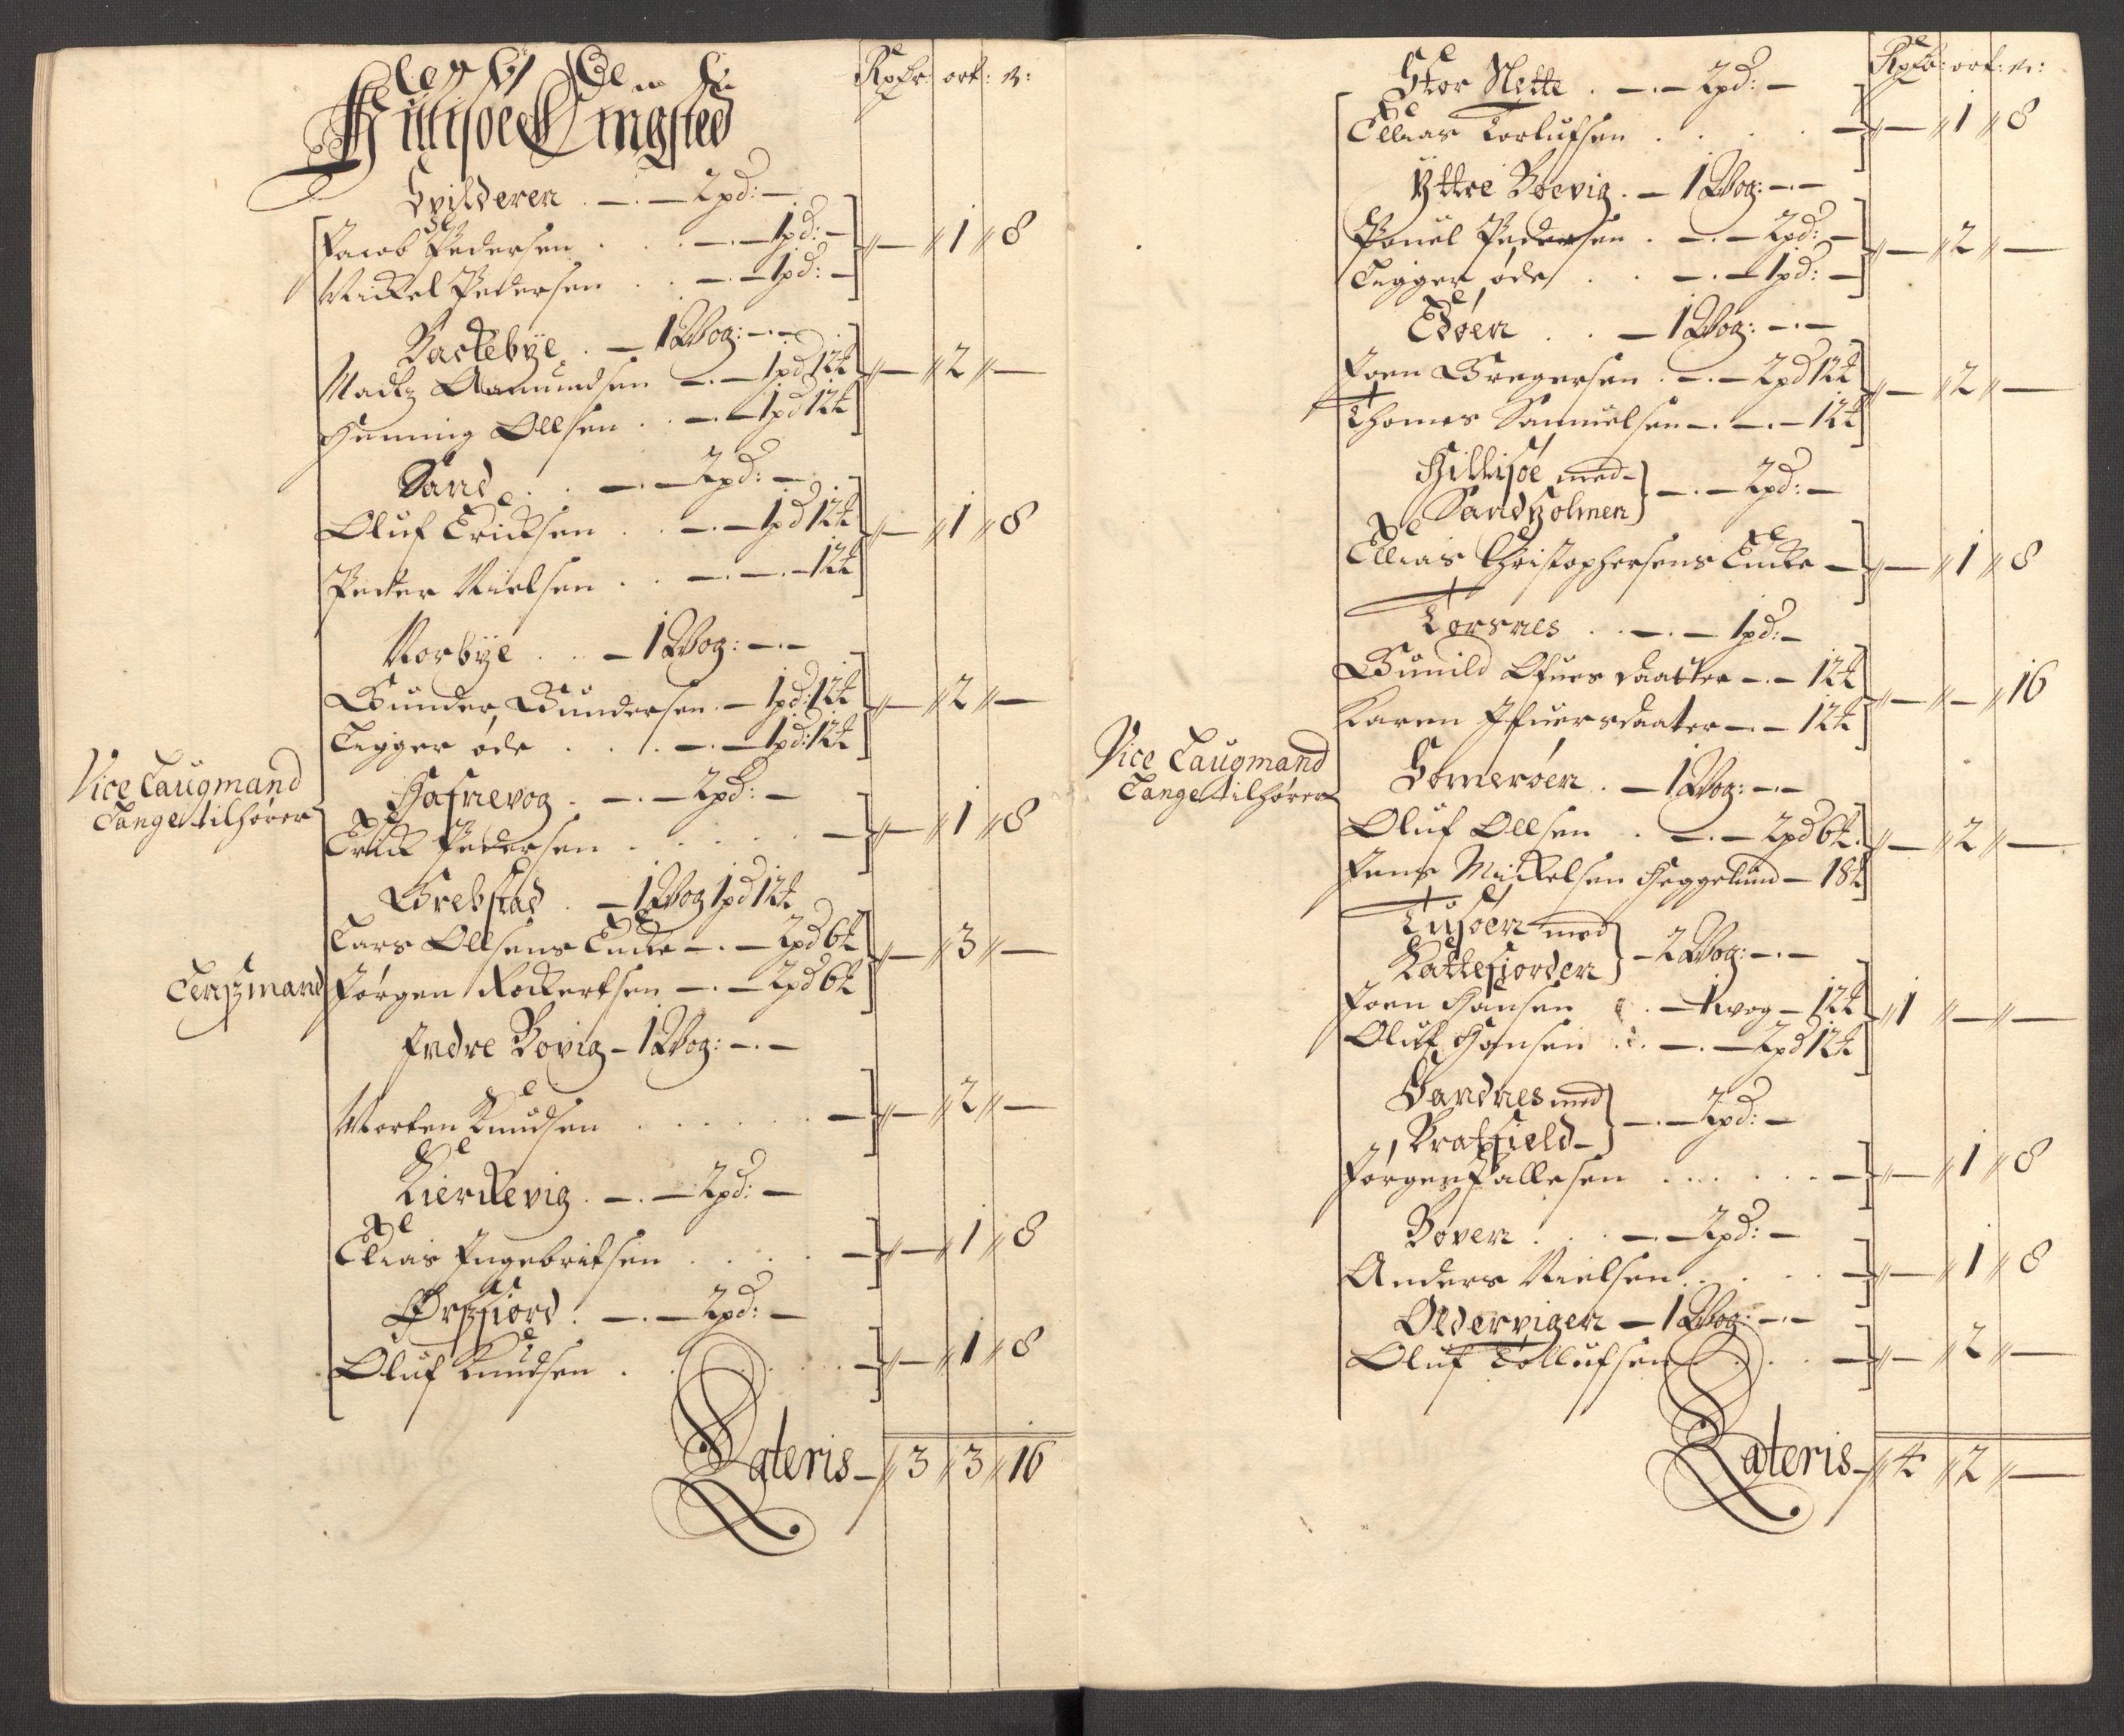 Hillisøe Tingsted
Rdr: ort: ß:
Qvilderen . — . — 2pd: —
Jacob Pedersen . . . — . — 1pd: — — 1 8
Mickel Pedersen . . — . — 1pd: —
Backebye . — 1 Wog: — . —
Madtz Aamundsen — . — 1pd 12 — 2 —
Henning Ollsen . — . — 1pd 12
Sand . . — . — 2pd: —
Oluf Ericksen . . — . — 1pd 12 — 1 8
Peder Nielsen . . — . — . — 12
Norbye . . — 1 Wog: — . —
Gunder Gundersen . — 1pd: 12 — 2 —
Ligger øde . . . — . — 1pd: 12
Vice Laugmand
Tange tilhører
Hafnevog . — . — 2pd: —
Erick Pedersen . . . . — — 1 8
Grebstad . — 1 Wog 1pd 12
Lars Ollsens Encke — . — 2pd 6 — 3 —
Lensmand Jørgen Rockertsen — . — 2pd 6
Indre Bovig — 1 Wog: — . —
Morten Knudsen . . . . . — — 2 —
Kierkevig . — . — 2pd: —
Elias Ingebritsen . . . . — — 1 8
Ørsfiord . — . — 2pd: —
Oluf Knudsen . . . . — — 1 8
Lateris — 3 3 16
Rdr: ort: ß:
Stor Slette . — . — 2pd: —
Ellias Torlufsen . . . . — — 1 8
Yttre Boevig . — 1 Wog: — . —
Pouel Pedersen . — . — 2pd: — — 2 —
Ligger øde . . — . — 1pd: —
Edøen . . — 1 Wog: — . —
Joen Gregersen . — . — 2pd 12 — 2 —
Thomes Samuelsen — . — . — 12
Hillisøe med —
Sandholmen — . — 2pd: —
Ellias Christophersens Encke — — 1 8
Torsnes . . — . — 1pd: —
Gunild Ofuers daatter — . — 12 — — 16
Karen Ifuersdaater — . — 12
Vice Laugmand
Tange tilhører
Somerøen . — 1 Wog: — . —
Oluf Ollsen . — . — 2pd 6 — 2 —
Jens Mickelsen Heggelund — 18
Tusøen med
Kattefiorden — 2 Wog: — . —
Joen Hansen . — 1 wog — 12 1 — —
Oluf Hansen . — . — 2pd 12
Sandnes med
Bratfield — — . — 2pd: —
Jørgen Pallesen . . . . . — — 1 8
Boven . . — . — 2pd: —
Anders Nielsen . . . . — — 1 8
Oldervigen — 1 Wog: — . —
Oluf Tollufsen . . . — — 2 —
Lateris — 4 2 —